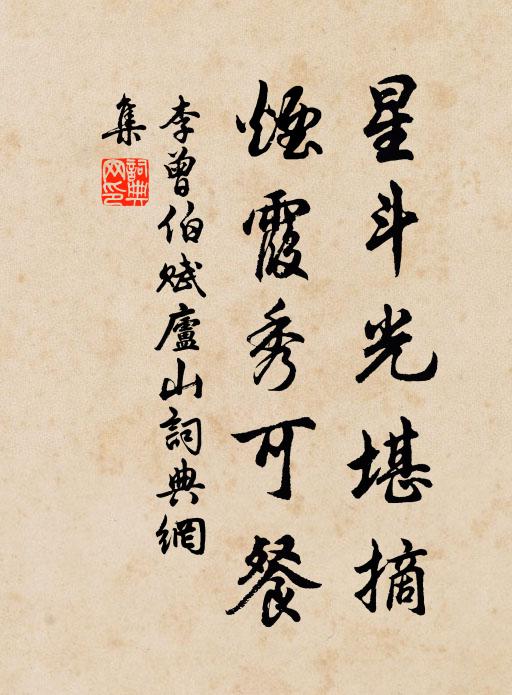 星斗光堪摘
煙霞秀可餐
李曾伯賦廬山詞典網
集
詞典
网印